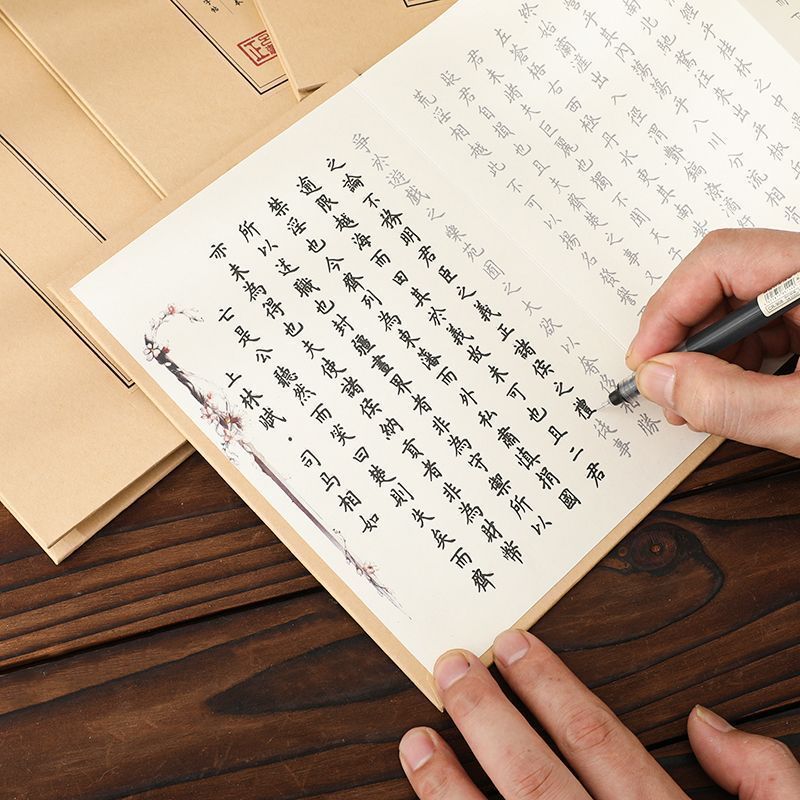 上林賦·司马相如
亡是公聽然而笑曰楚則失矣而齊
亦未為得也夫使諸侯納貢者非為財幣
所以述職也封疆畫界者非為守禦所以
禁淫也今齊列為東藩而外私肅慎捐國
逾限越海而田其於義故未可也且二君
之論不務明君臣之義正諸侯之禮徒事
爭於遊戲之樂苑囿之大欲以奢侈相勝
荒淫相越此不可以揚名發譽
貶君自損也且夫齊楚之事又
君未睹夫巨麗也獨不聞天子
左蒼梧右西極丹水更其南紫
終始灞滻出入涇渭酆鎬潦潏
乎其內蕩蕩乎八川分流相背
南北馳騖往來出乎椒
經乎桂林之中